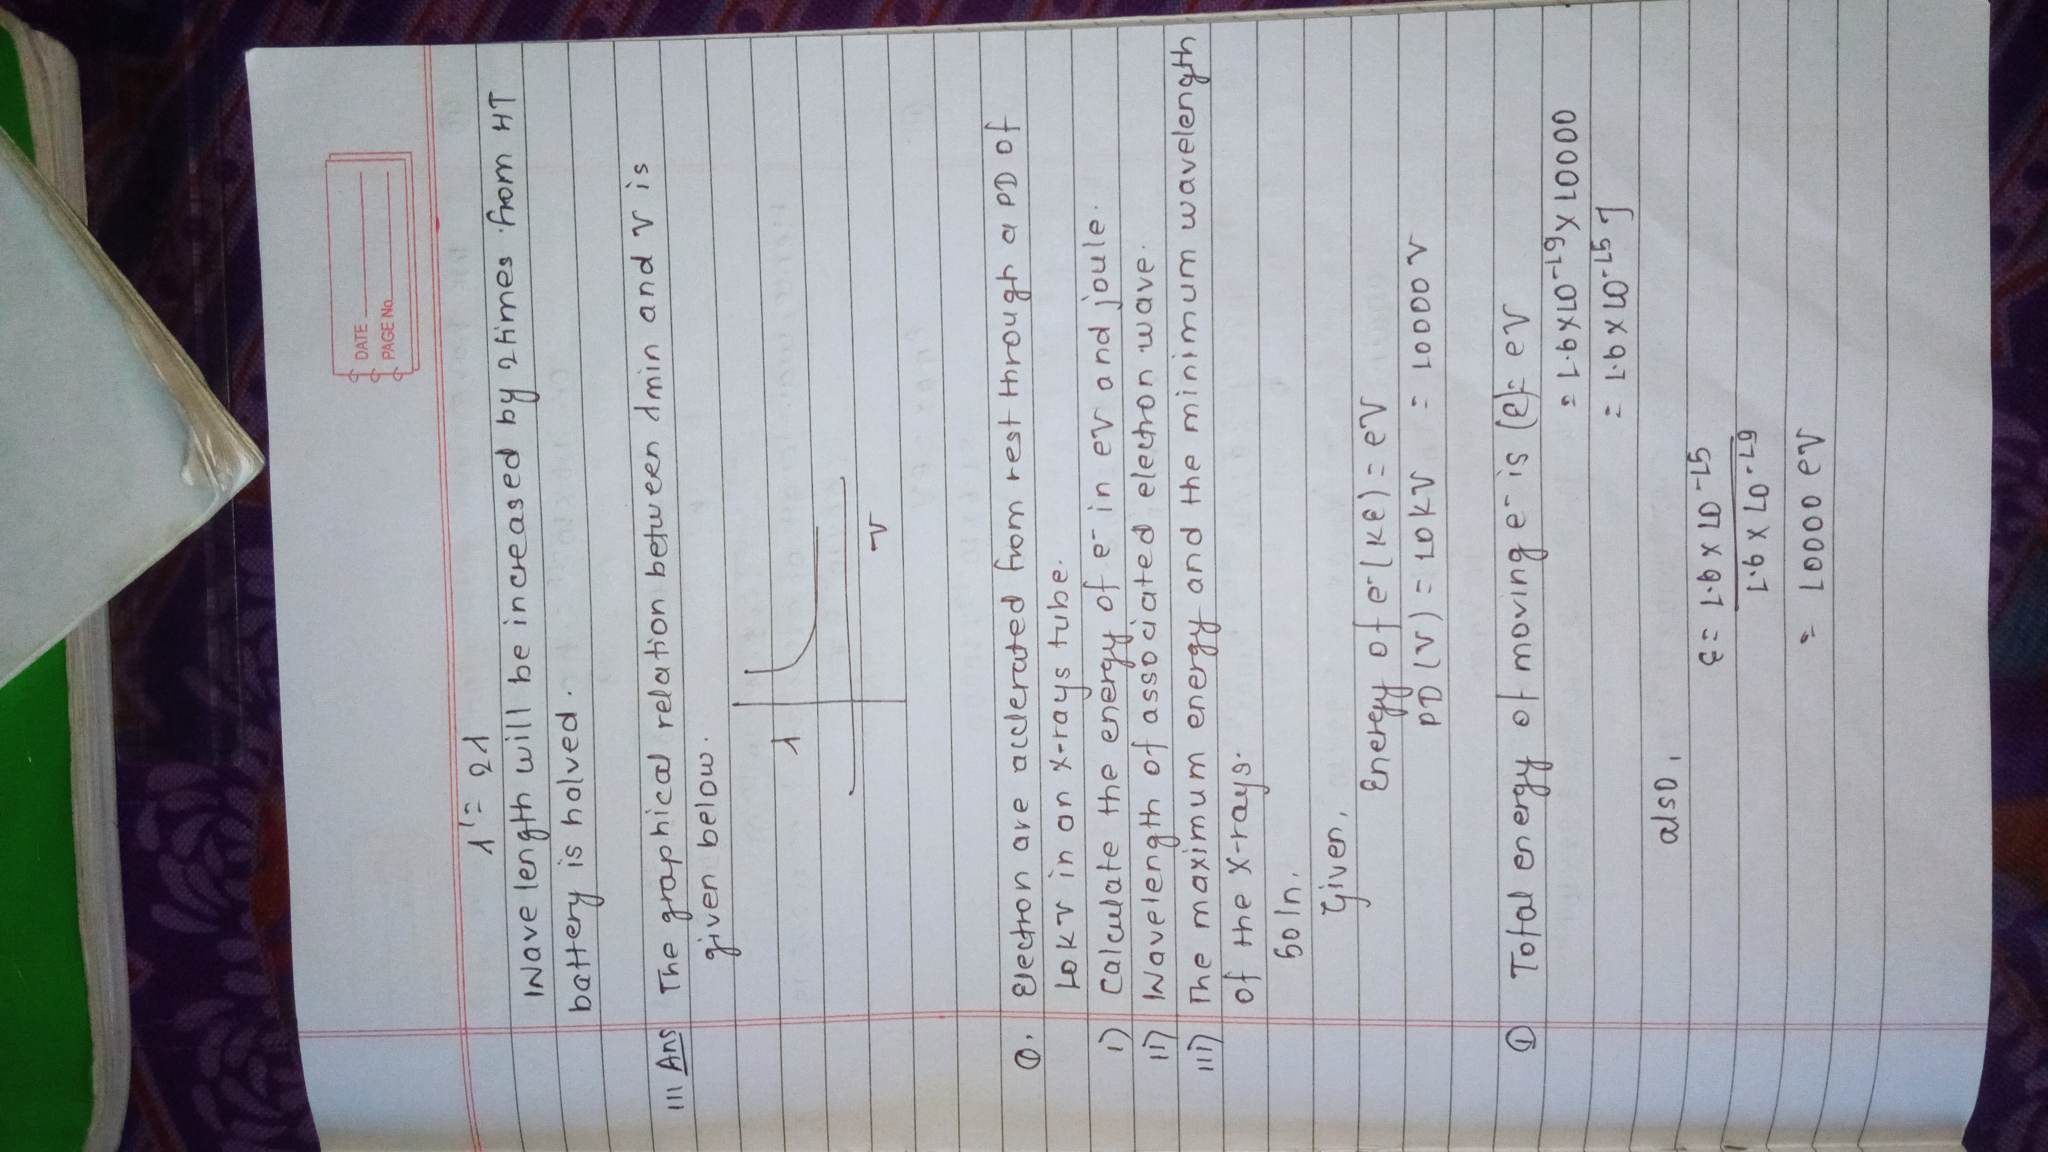 DATE
PAGE No.
λ' = 2λ
Wave length will be increased by 2 times from HT
battery is halved.
III Ans The graphical relation between λmin and V is
given below.
λ
V
Q. Electron are acclerated from rest through a PD of
10kV in an X-rays tube.
i) Calculate the energy of e⁻ in eV and joule.
ii) Wavelength of associated electron wave.
iii) The maximum energy and the minimum wavelength
of the X-rays.
Soln,
Given,
Energy of e⁻ (KE) = eV
PD (V) = 10kV = 10000 V
① Total energy of moving e⁻ is (E) = eV
= 1.6 × 10⁻¹⁹ × 10000
= 1.6 × 10⁻¹⁵ J
also,
E = 1.6 × 10⁻¹⁵
1.6 × 10⁻¹⁹
= 10000 eV